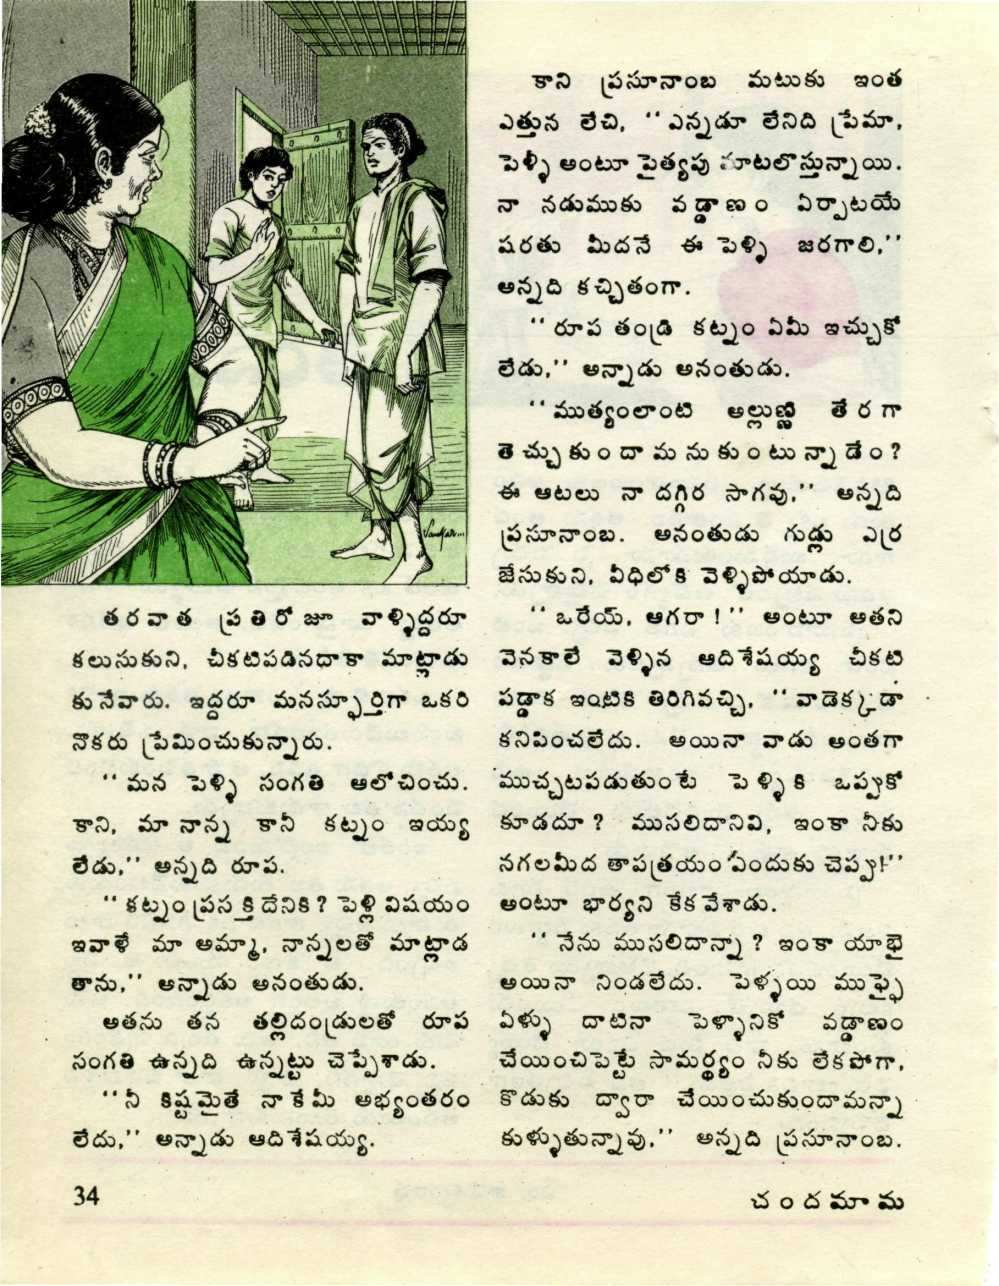 తరవాత ప్రతిరోజూ వాళ్ళిద్దరూ
కలుసుకుని, చీకటిపడినదాకా మాట్లాడు
కునేవారు. ఇద్దరూ మనస్ఫూర్తిగా ఒకరి
నొకరు ప్రేమించుకున్నారు.
‘‘మన పెళ్ళి సంగతి ఆలోచించు.
కాని, మా నాన్న కానీ కట్నం ఇయ్య
లేడు,’’ అన్నది రూప.
‘‘కట్నం ప్రసక్తి దేనికి? పెళ్లి విషయం
ఇవాళే మా అమ్మా, నాన్నలతో మాట్లాడ
తాను,’’ అన్నాడు అనంతుడు.
అతను తన తల్లిదండ్రులతో రూప
సంగతి ఉన్నది ఉన్నట్టు చెప్పేశాడు.
‘‘నీ కిష్టమైతే నా కేమీ అభ్యంతరం
లేదు,’’ అన్నాడు ఆదిశేషయ్య.
కాని ప్రసూనాంబ మటుకు ఇంత
ఎత్తున లేచి, ‘‘ఎన్నడూ లేనిది ప్రేమా,
పెళ్ళీ అంటూ పైత్యపు మాటలొస్తున్నాయి.
నా నడుముకు వడ్డాణం ఏర్పాటయే
షరతు మీదనే ఈ పెళ్ళి జరగాలి,’’
అన్నది కచ్చితంగా.
‘‘రూప తండ్రి కట్నం ఏమీ ఇచ్చుకో
లేడు,’’ అన్నాడు అనంతుడు.
‘‘ముత్యంలాంటి అల్లుణ్ణి తేరగా
తెచ్చుకుందామనుకుంటున్నాడేం?
ఈ ఆటలు నా దగ్గిర సాగవు,’’ అన్నది
ప్రసూనాంబ. అనంతుడు గుడ్లు ఎర్ర
జేసుకుని, వీధిలోకి వెళ్ళిపోయాడు.
‘‘ఒరేయ్, ఆగరా!’’ అంటూ అతని
వెనకాలే వెళ్ళిన ఆదిశేషయ్య చీకటి
పడ్డాక ఇంటికి తిరిగివచ్చి, ‘‘వాడెక్కడా
కనిపించలేదు. అయినా వాడు అంతగా
ముచ్చటపడుతుంటే పెళ్ళికి ఒప్పుకో
కూడదూ? ముసలిదానివి, ఇంకా నీకు
నగలమీద తాపత్రయం ఎందుకు చెప్పు!’’
అంటూ భార్యని కేకవేశాడు.
‘‘నేను ముసలిదాన్నా? ఇంకా యాభై
అయినా నిండలేదు. పెళ్ళయి ముఫ్ఫై
ఏళ్ళు దాటినా పెళ్ళానికో వడ్డాణం
చేయించిపెట్టే సామర్థ్యం నీకు లేకపోగా,
కొడుకు ద్వారా చేయించుకుందామన్నా
కుళ్ళుతున్నావు,’’ అన్నది ప్రసూనాంబ.
34
చందమామ